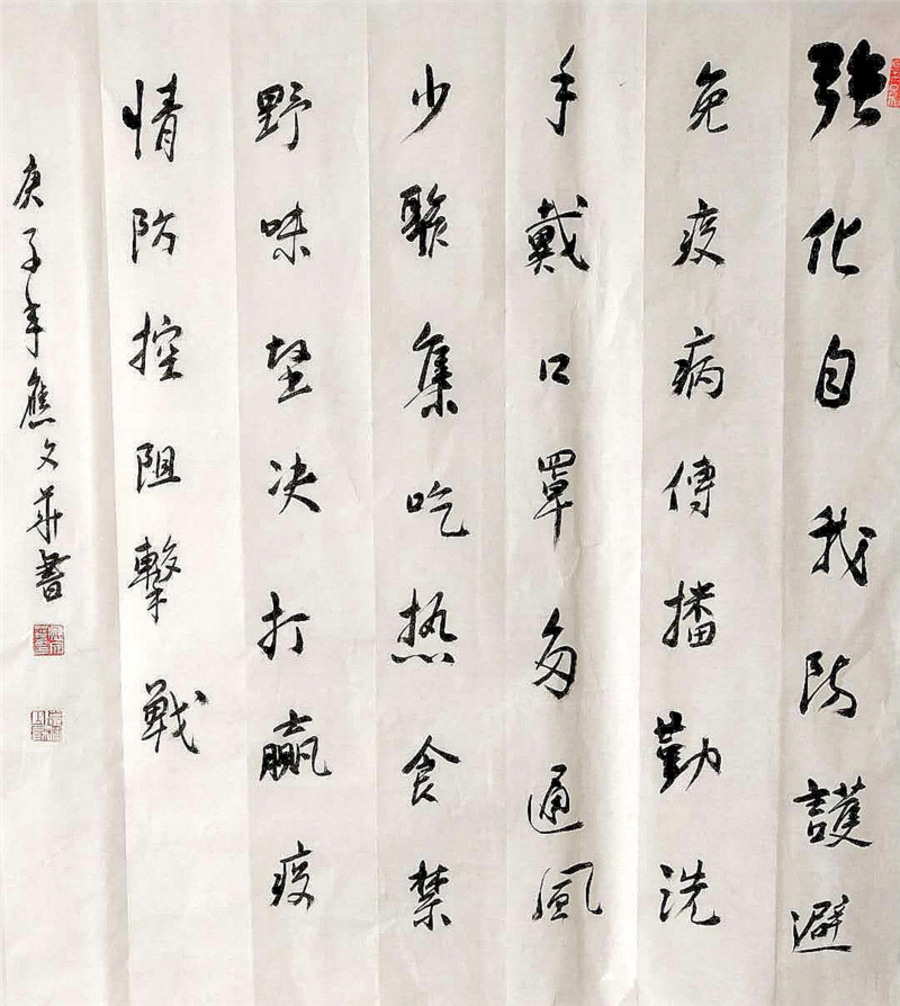 強化自我防護避
免疫病傳播勤洗
手戴口罩多通風
少聚集吃热食禁
野味堅决打贏疫
情防控阻擊戰
庚子年應文華書